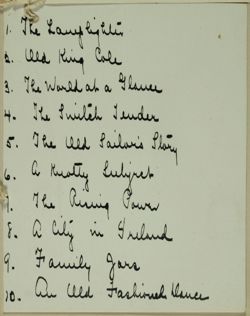 1. The Lamplighter
2. Old King Cole
3. The World at a Glance
4. The Switch Tender
5. The Old Sailor's Story
6. A Knotty Subject
7. The Rising Power
8. A City in Ireland
9. Family Jars
10. An Old Fashioned Dance